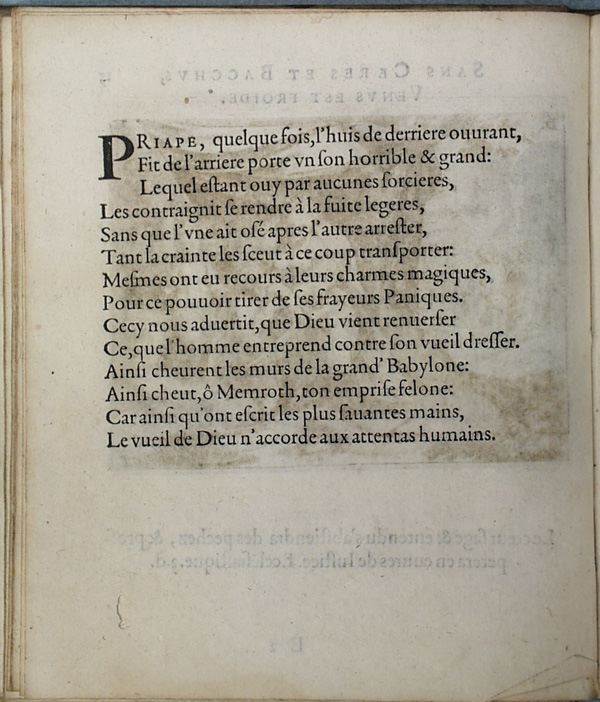 PRIAPE, quelque fois, l'huis de derriere ouurant,
Fit de l'arriere porte vn ſon horrible & grand:
Lequel eſtant ouy par aucunes ſorcieres,
Les contraignit ſe rendre à la fuite legeres,
Sans que l'vne ait oſé apres l'autre arreſter,
Tant la crainte les ſceut à ce coup tranſporter:
Meſmes ont eu recours à leurs charmes magiques,
Pour ce pouuoir tirer de ſes frayeurs Paniques.
Cecy nous aduertit, que Dieu vient renuerſer
Ce, que l'homme entreprend contre ſon vueil dreſſer.
Ainſi cheurent les murs de la grand' Babylone:
Ainſi cheut, ô Memroth, ton empriſe felone:
Car ainſi qu'ont eſcrit les plus ſauantes mains,
Le vueil de Dieu n'accorde aux attentas humains.